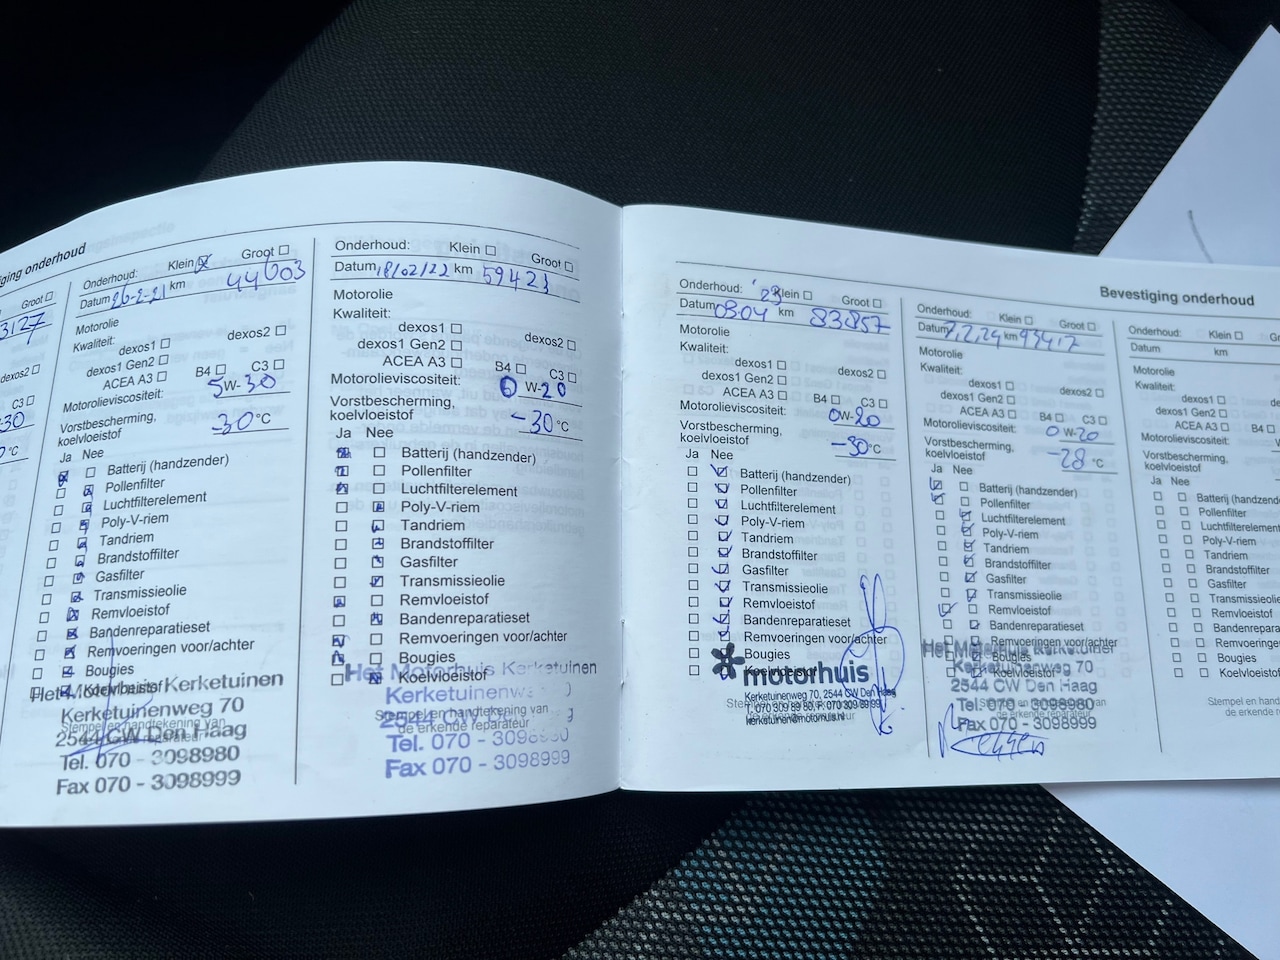 ging onderhoud
Groot ☐
3127
dexos2 ☐
C3 ☐
30
°C
Onderhoud: Klein ☒ Groot ☐
Datum 26-2-21 km 44003
Motorolie
Kwaliteit:
dexos1 ☐ dexos2 ☐
dexos1 Gen2 ☐
ACEA A3 ☐ B4 ☐ C3 ☐
Motorolieviscositeit: 5W-30
Vorstbescherming,
koelvloeistof -30 °C
Ja Nee
Batterij (handzender)
Pollenfilter
Luchtfilterelement
Poly-V-riem
Tandriem
Brandstoffilter
Gasfilter
Transmissieolie
Remvloeistof
Bandenreparatieset
Remvoeringen voor/achter
Bougies
Koelvloeistof
Het Motorhuis Kerketuinen
Kerketuinenweg 70
Stempel en handtekening van
de erkende reparateur
2544 CW Den Haag
Tel. 070 - 3098980
Fax 070 - 3098999
Onderhoud: Klein ☐ Groot ☐
Datum 18/02/22 km 59423
Motorolie
Kwaliteit:
dexos1 ☐ dexos2 ☐
dexos1 Gen2 ☐
ACEA A3 ☐ B4 ☐ C3 ☐
Motorolieviscositeit: 0 W-20
Vorstbescherming,
koelvloeistof -30 °C
Ja Nee
Batterij (handzender)
Pollenfilter
Luchtfilterelement
Poly-V-riem
Tandriem
Brandstoffilter
Gasfilter
Transmissieolie
Remvloeistof
Bandenreparatieset
Remvoeringen voor/achter
Bougies
Koelvloeistof
Het Motorhuis Kerketuinen
Kerketuinenw
Stempel en handtekening van
de erkende reparateur
2544 CW
Tel. 070 - 3098980
Fax 070 - 3098999
Onderhoud: '23 Klein ☐ Groot ☐
Datum 03-04 km 83857
Motorolie
Kwaliteit:
dexos1 ☐ dexos2 ☐
dexos1 Gen2 ☐
ACEA A3 ☐ B4 ☐ C3 ☐
Motorolieviscositeit: 0W-20
Vorstbescherming,
koelvloeistof -30 °C
Ja Nee
Batterij (handzender)
Pollenfilter
Luchtfilterelement
Poly-V-riem
Tandriem
Brandstoffilter
Gasfilter
Transmissieolie
Remvloeistof
Bandenreparatieset
Remvoeringen voor/achter
Bougies
Koelvloeistof
motorhuis
Kerketuinenweg 70, 2544 CW Den Haag
T. 070 309 89 80, F. 070 309 89 99
kerketuinen@motorhuis.nl
Bevestiging onderhoud
Onderhoud: Klein ☐ Groot ☐
Datum km 93417
Motorolie
Kwaliteit:
dexos1 ☐ dexos2 ☐
dexos1 Gen2 ☐
ACEA A3 ☐ B4 ☐ C3 ☐
Motorolieviscositeit: 0 W-20
Vorstbescherming,
koelvloeistof -28 °C
Ja Nee
Batterij (handzender)
Pollenfilter
Luchtfilterelement
Poly-V-riem
Tandriem
Brandstoffilter
Gasfilter
Transmissieolie
Remvloeistof
Bandenreparatieset
Remvoeringen voor/achter
Bougies
Koelvloeistof
Het Motorhuis Kerketuinen
Kerketuinenweg 70
2544 CW Den Haag
Tel. 070 - 3098980
Fax 070 - 3098999
Onderhoud: Klein ☐ G
Datum km
Motorolie
Kwaliteit:
dexos1 ☐
dexos1 Gen2 ☐
ACEA A3 ☐ B4 ☐
Motorolieviscositeit:
Vorstbescherming,
koelvloeistof
Ja Nee
Batterij (handzende
Pollenfilter
Luchtfilterelement
Poly-V-riem
Tandriem
Brandstoffilter
Gasfilter
Transmissieolie
Remvloeistof
Bandenrepara
Remvoeringen
Bougies
Koelvloeistof
Stempel en handte
de erkende r